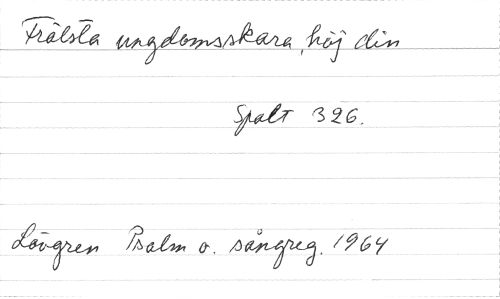 Frälsta ungdomsskara, höj din
Spalt 326.
Lövgren Psalm o. sångreg. 1964